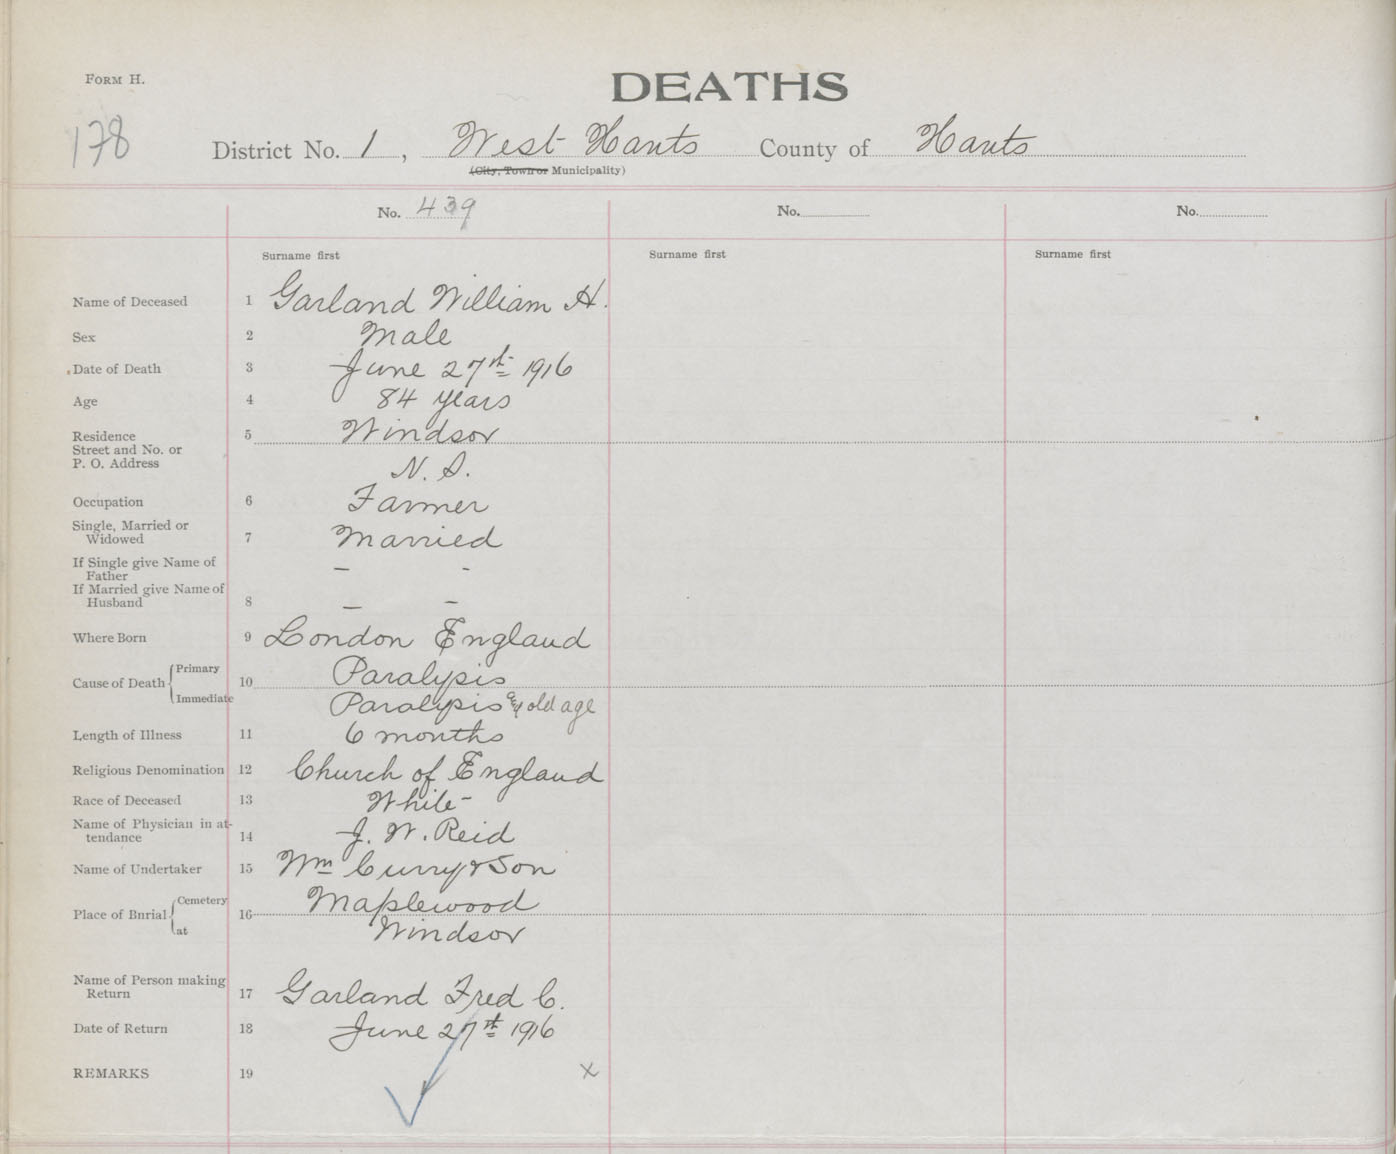 FORM H.
DEATHS
178
District No. 1, West Hants County of Hants
(City, Town or Municipality)
No. 439 No. No.
Surname first Surname first Surname first
Name of Deceased 1 Garland William H.
Sex 2 Male
Date of Death 3 June 27th 1916
Age 4 84 years
Residence 5 Windsor
Street and No. or
P. O. Address N. S.
Occupation 6 Farmer
Single, Married or
Widowed 7 Married
If Single give Name of
Father – -
If Married give Name of
Husband 8 – –
Where Born 9 London England
Cause of Death Primary 10 Paralysis
Immediate Paralysis & old age
Length of Illness 11 6 months
Religious Denomination 12 Church of England
Race of Deceased 13 White
Name of Physician in at-
tendance 14 J. W. Reid
Name of Undertaker 15 Wm Curry & Son
Place of Burial Cemetery 16 Maplewood
at Windsor
Name of Person making
Return 17 Garland Fred C.
Date of Return 18 June 27th 1916
REMARKS 19 x